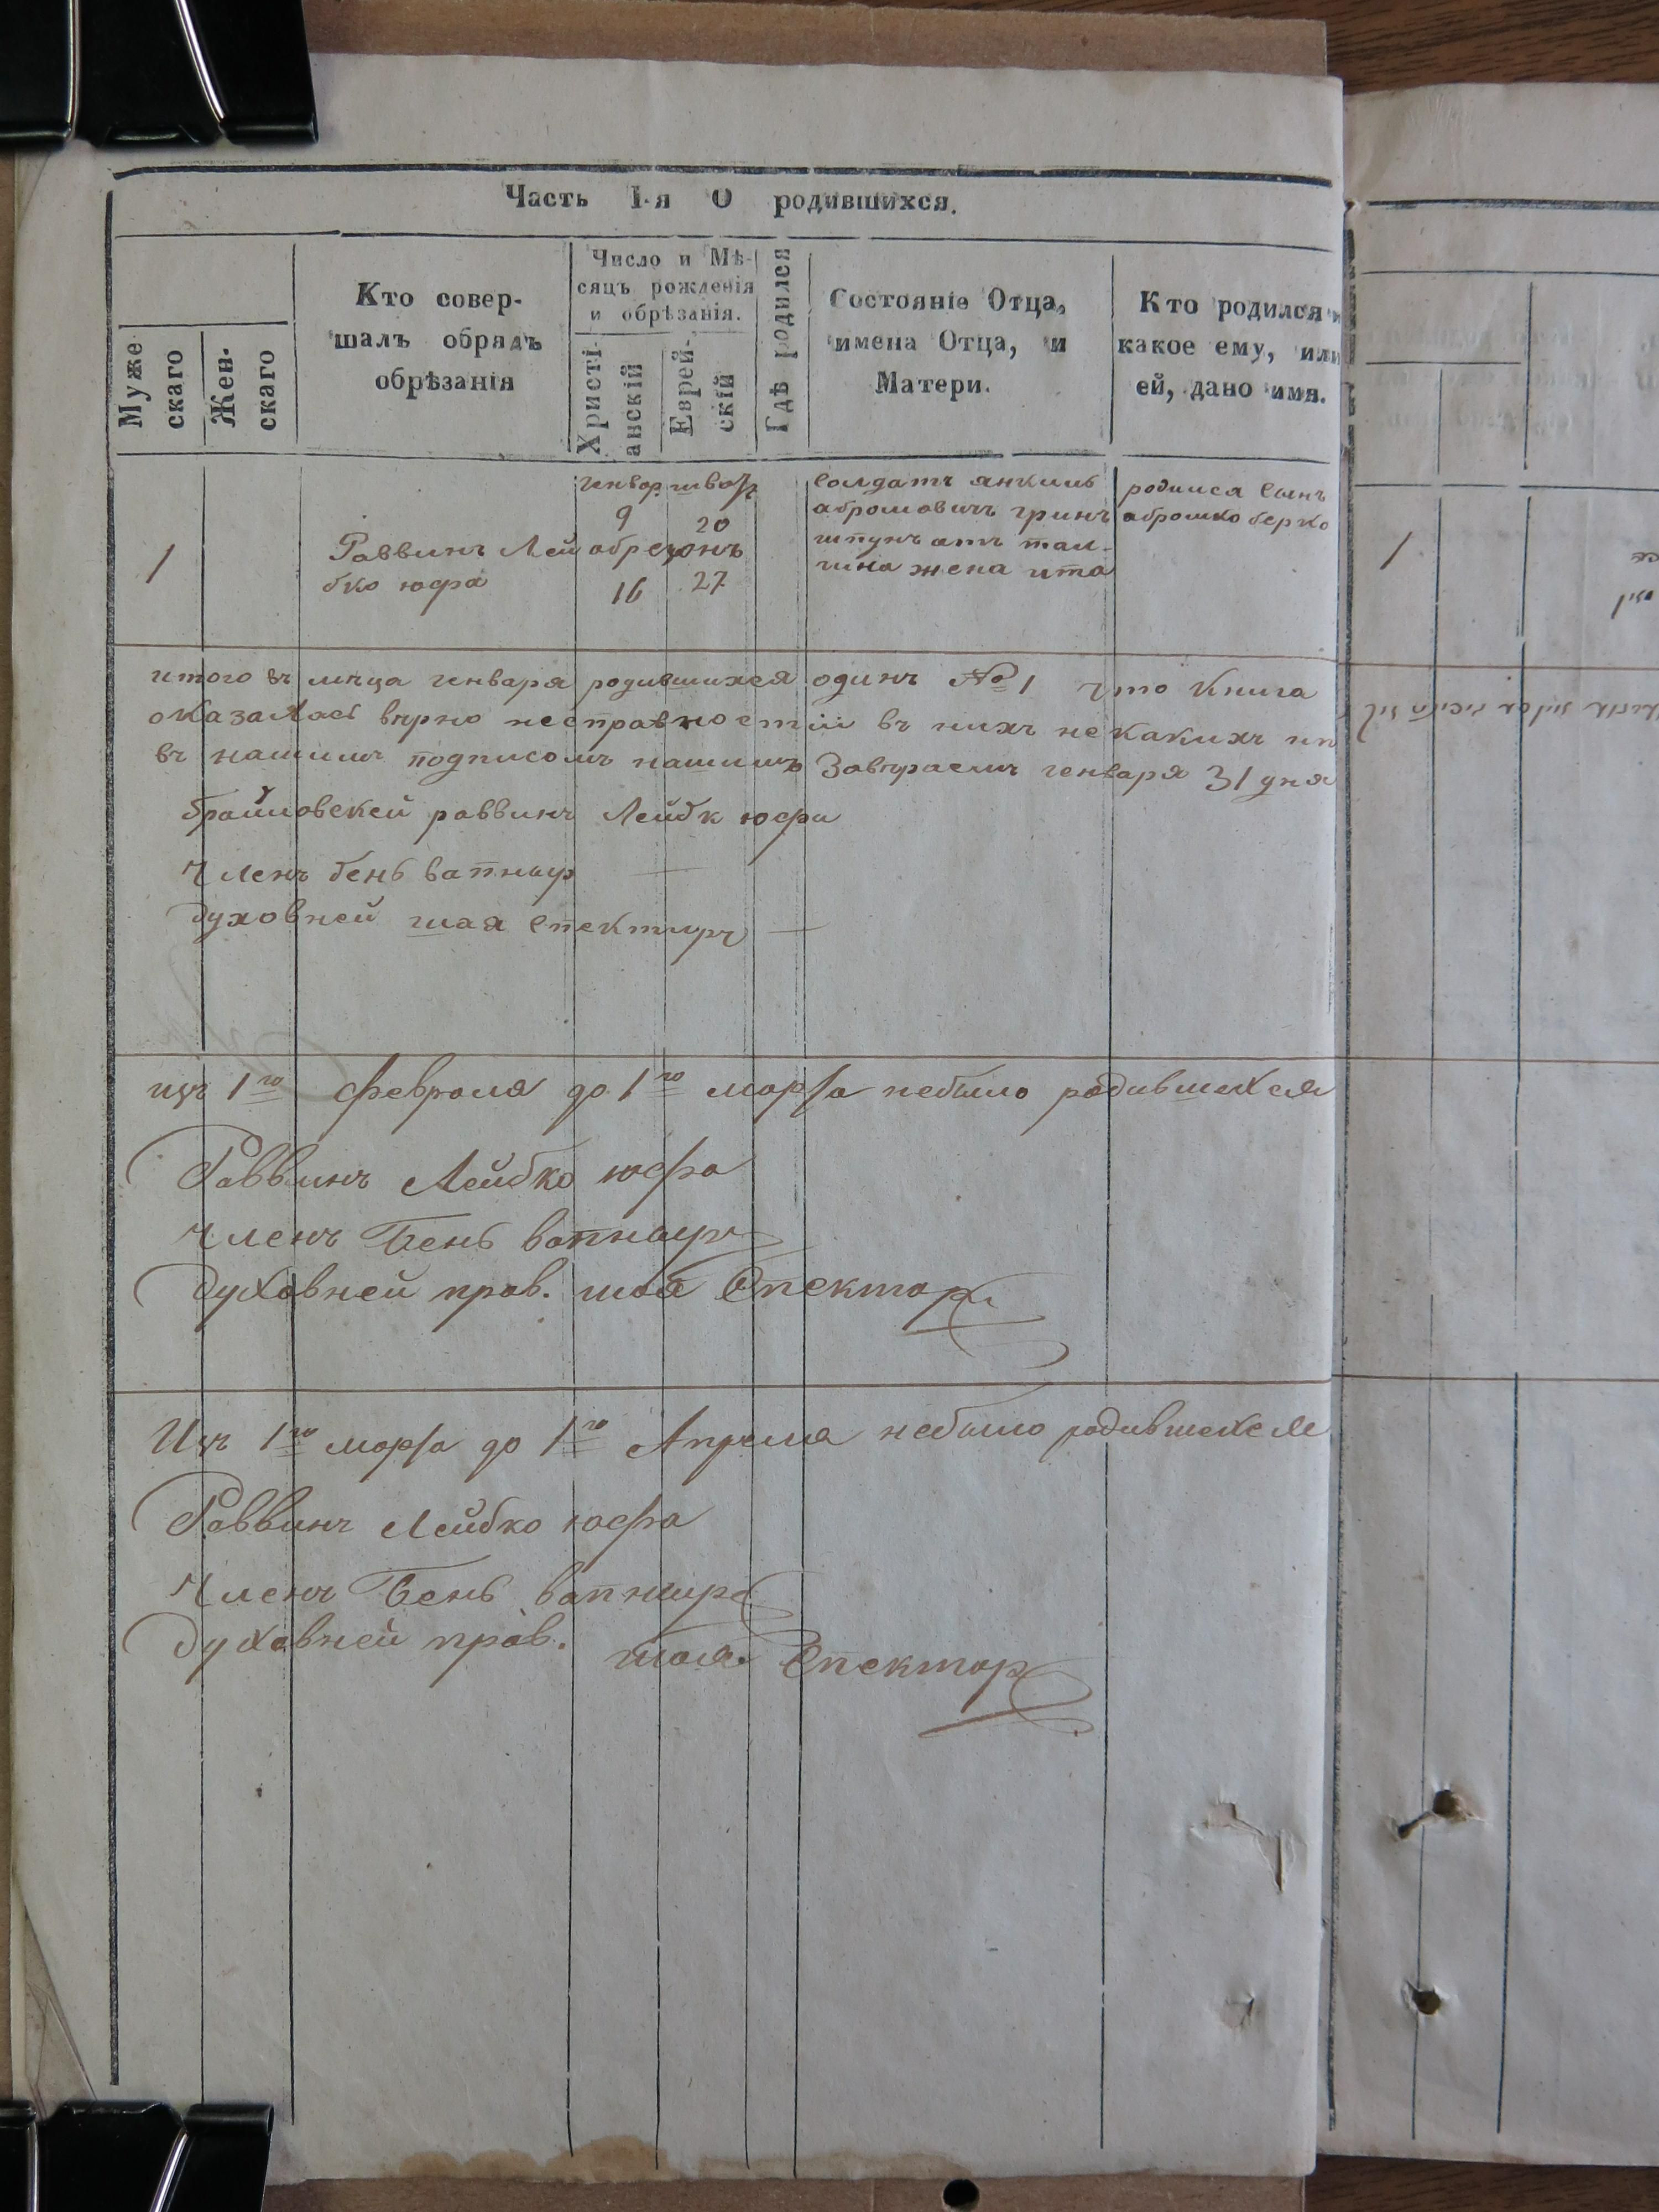 Часть I-я О родившихся.
Муже
скаго
Жен-
скаго
Кто совер-
шалъ обрядъ
обрѣзанія
Число и Мѣ-
сяцъ рожденія
и обрѣзанія.
Христі-
анскій
Еврей-
скій
Гдѣ родился
Состояніе Отца,
имена Отца, и
Матери.
Кто родился и
какое ему, или
ей, дано имя.
1
Раввинъ Лей
бко юфа
генвар. шват
9 20
обрезонъ
16 27
Солдатъ янкиль
абромовичъ гринъ
шпунъ отъ
жена ита
родился Сынъ
аброшко берко
1
итого въ мѣца генваря родившихся одинъ №1 что Книга
оказалась вѣрно несправностіи въ нихъ некакихъ
въ нашимъ подписомъ нашимъ Завѣраемъ генваря 31 дня
браиловскей раввинъ Лейбк юфи
Членъ бень вапняр
духовней шая спекторъ
изъ 1го февроля до 1го марта небыло родившихся
Раввинъ Лейбко юфа
Членъ Бень вапняръ
духовней прав. шая Спектор
Изъ 1го марта до 1го Апреля небыло родившехся
Раввинъ Лейбко юфа
Членъ Бень вапнир
духовней прав. шая Спектор